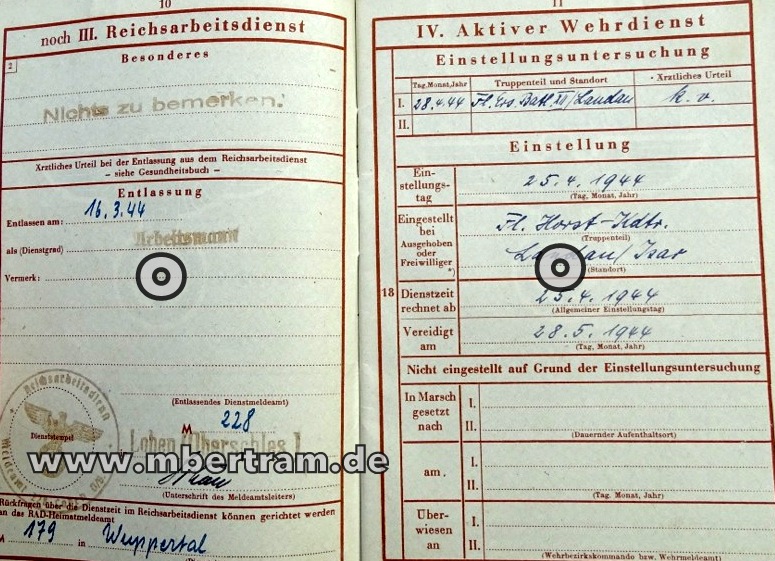 10
noch III. Reichsarbeitsdienst
2
Besonderes
Nichts zu bemerken.
Ärztliches Urteil bei der Entlassung aus dem Reichsarbeitsdienst
– siehe Gesundheitsbuch –
Entlassung
Entlassen am: 16.3.44
als (Dienstgrad) Arbeitsmann
Vermerk:
(Entlassendes Dienstmeldeamt)
Reichsarbeitsdienst
Meldeamt
Dienststempel
M 228
Loben (Oberschles.)
(Unterschrift des Meldeamtsleiters)
Rückfragen über die Dienstzeit im Reichsarbeitsdienst können gerichtet werden
an das RAD-Heimatmeldeamt
M 179 in Wuppertal
11
IV. Aktiver Wehrdienst
Einstellungsuntersuchung
Tag, Monat, Jahr Truppenteil und Standort Ärztliches Urteil
I. 28.4.44 Fl. Ers. Batl. XI/Landau k. v.
II.
Einstellung
Ein-
stellungs-
tag
25.4.1944
(Tag, Monat, Jahr)
Eingestellt
bei
Ausgehoben
oder
Freiwilliger
*)
Fl. Horst-Kdtr.
(Truppenteil)
Landau/Isar
(Standort)
18 Dienstzeit
rechnet ab
25.4.1944
(Allgemeiner Einstellungstag)
Vereidigt
am
28.5.1944
(Tag, Monat, Jahr)
Nicht eingestellt auf Grund der Einstellungsuntersuchung
In Marsch
gesetzt
nach
I.
II.
(Dauernder Aufenthaltsort)
am.
I.
II.
(Tag, Monat, Jahr)
Über-
wiesen
an
I.
II.
(Wehrbezirkskommando bzw. Wehrmeldeamt)
www.mbertram.de